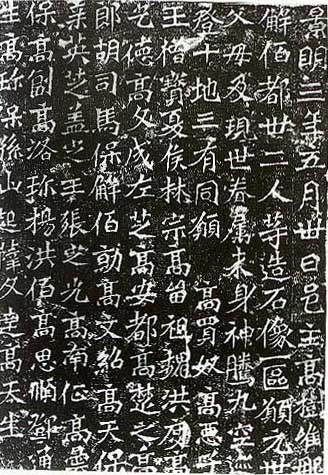 景明三年五月卅日邑主高樹維那
解佰都卅二人等造石像一區願元世
父母及現世眷屬來身神騰九空迹
登十地三有同願 高買奴高惡子
王僧寶夏侯林宗高留祖魏洪度高
乞德高文成左芝高安都高楚之高
郎胡司馬保解佰勍高文紹高天保
孟英芝蓋定王張芝光高南征高曇
保高副高洛珎楊洪佰高思順鄧通
生高珎保孫山起薛文達高天生